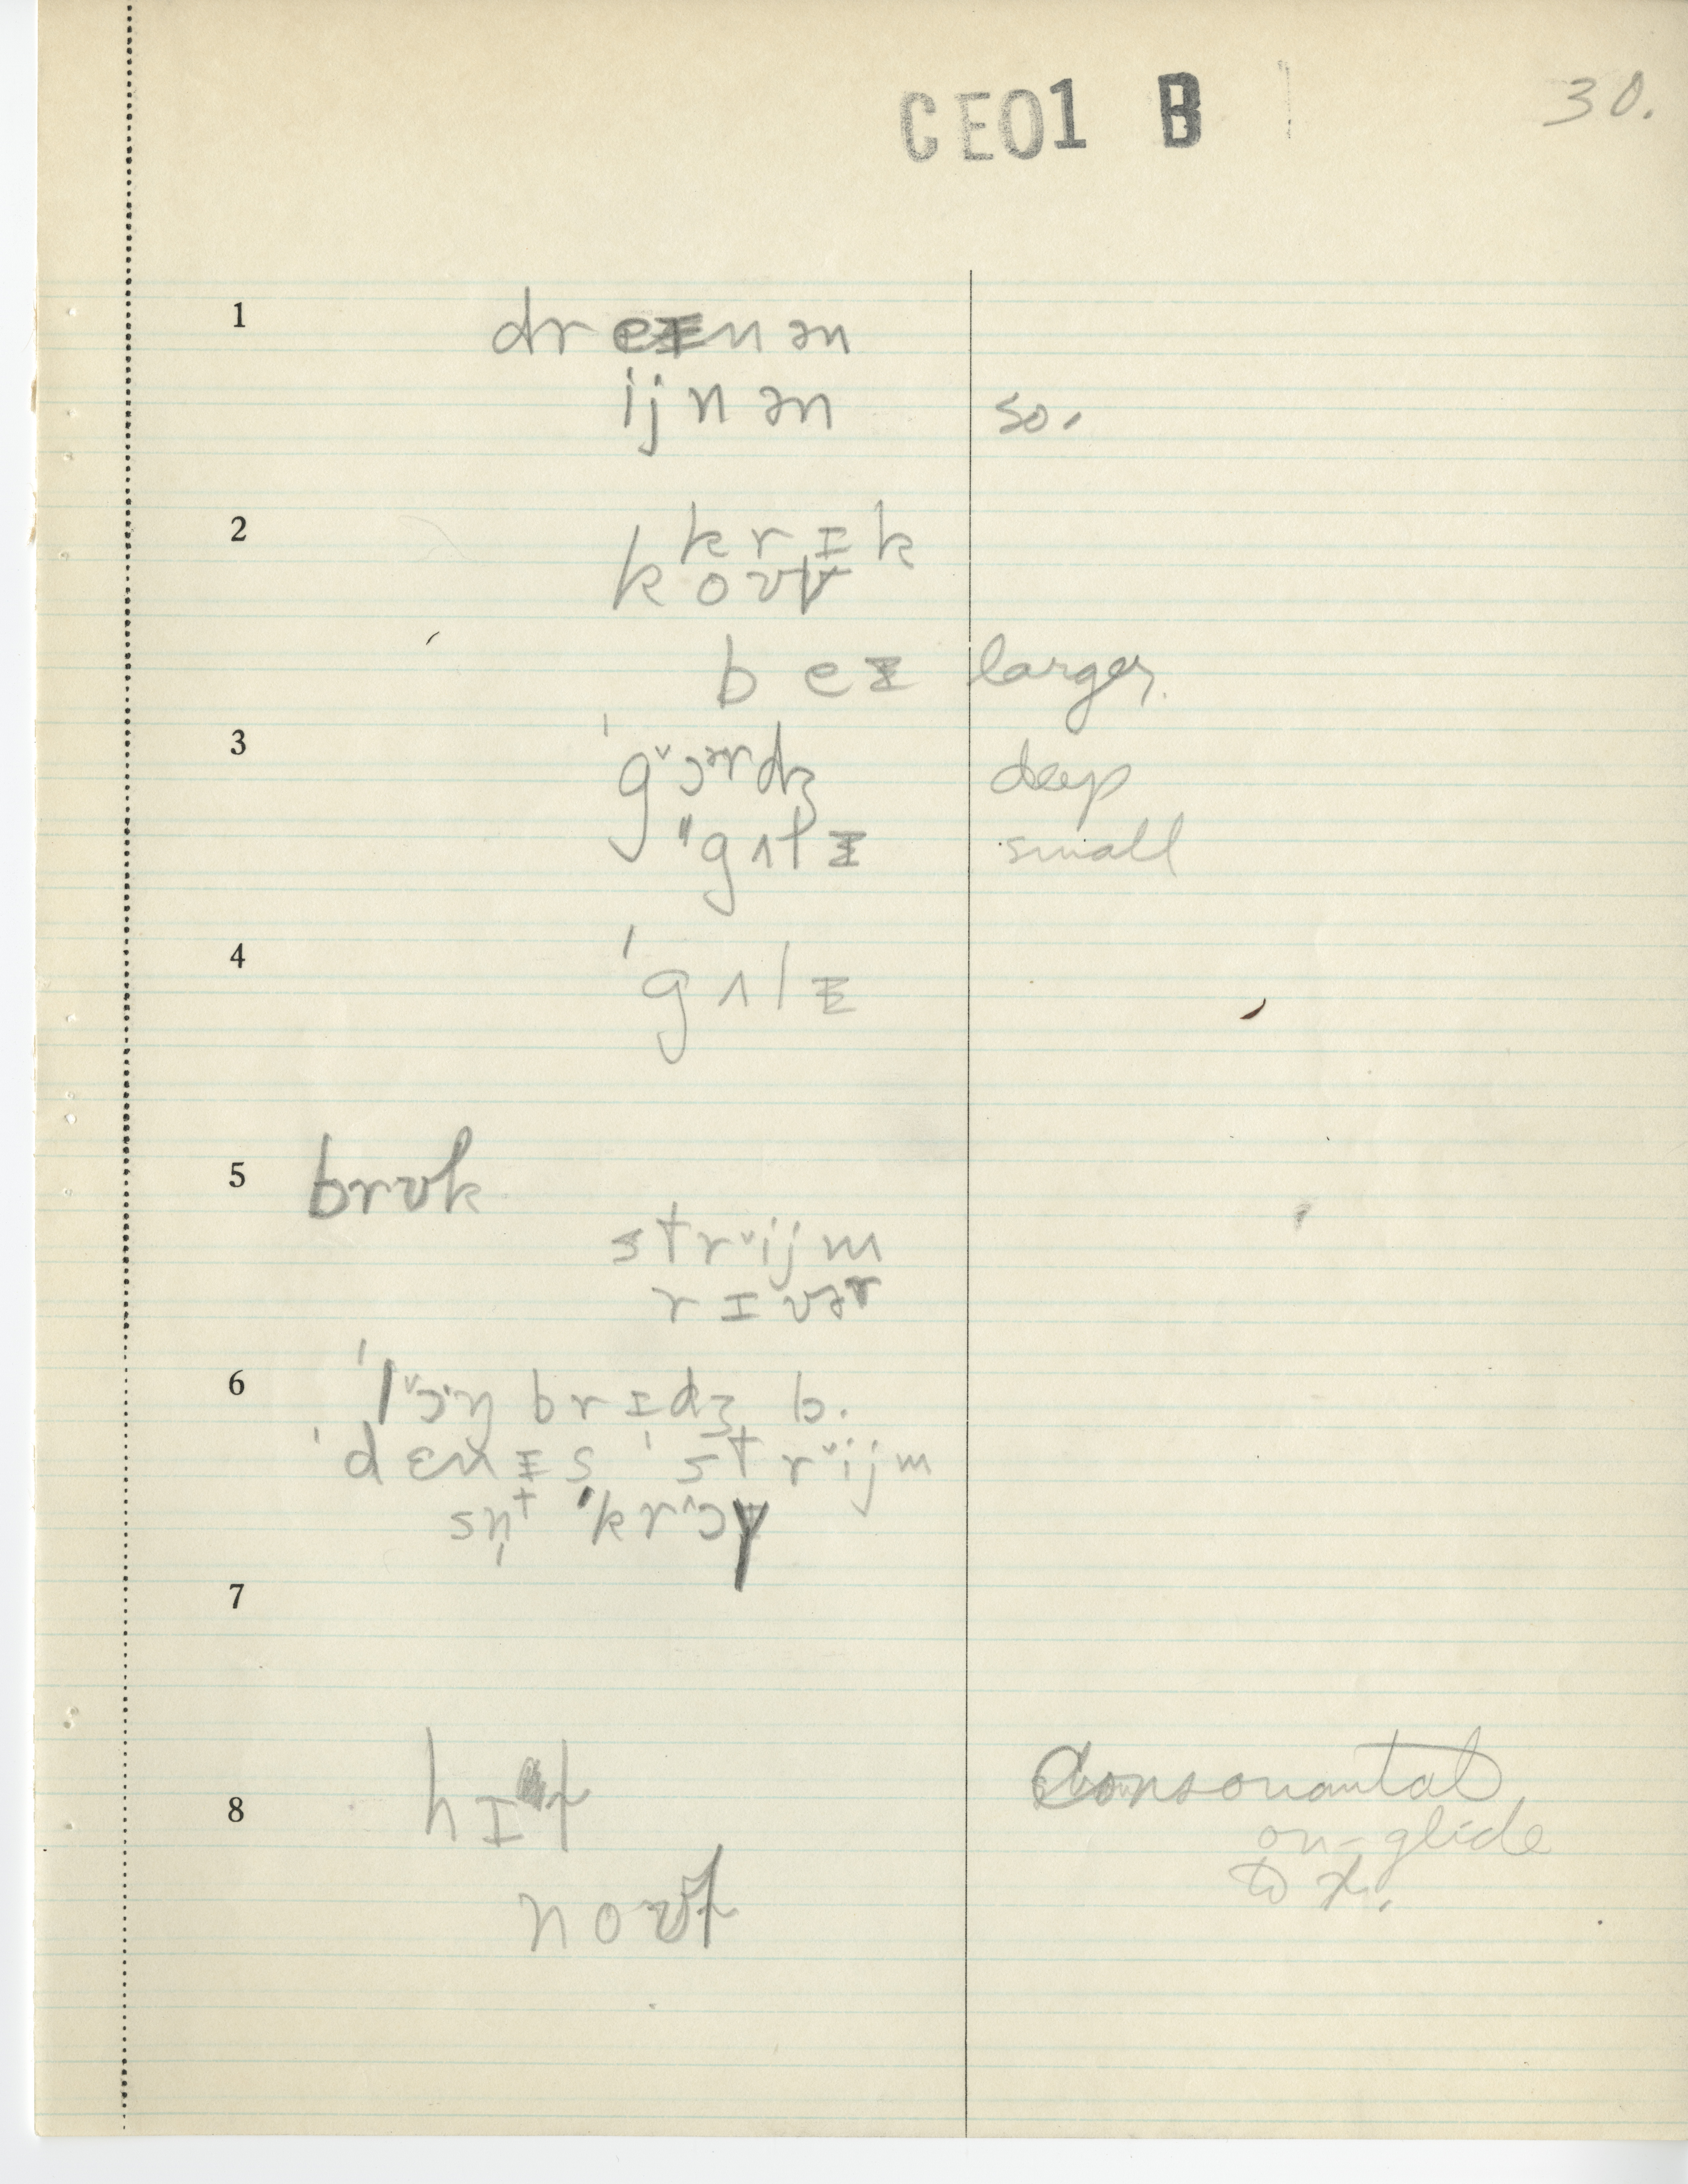 CE01 B 30.
1 dr eᵻ n ən
ijn ən so.
2 krɪk
koʊv
beᵻ larger.
3 ˈg˅ɔᵊrdʒ deep
"gʌlᵻ small
4 ˈgʌlᵻ
5 brʊk
str˅ijm
rɪvər
6 ˈl˅ɔ·ŋ brɪdʒ b.
ˈdɛnᵻs ˈstr˅ijm
sn̩t ˈkr^ɔᵻ
7
8 hɪɫ Consonantal
on-glide
noʊɫ to ɫ.